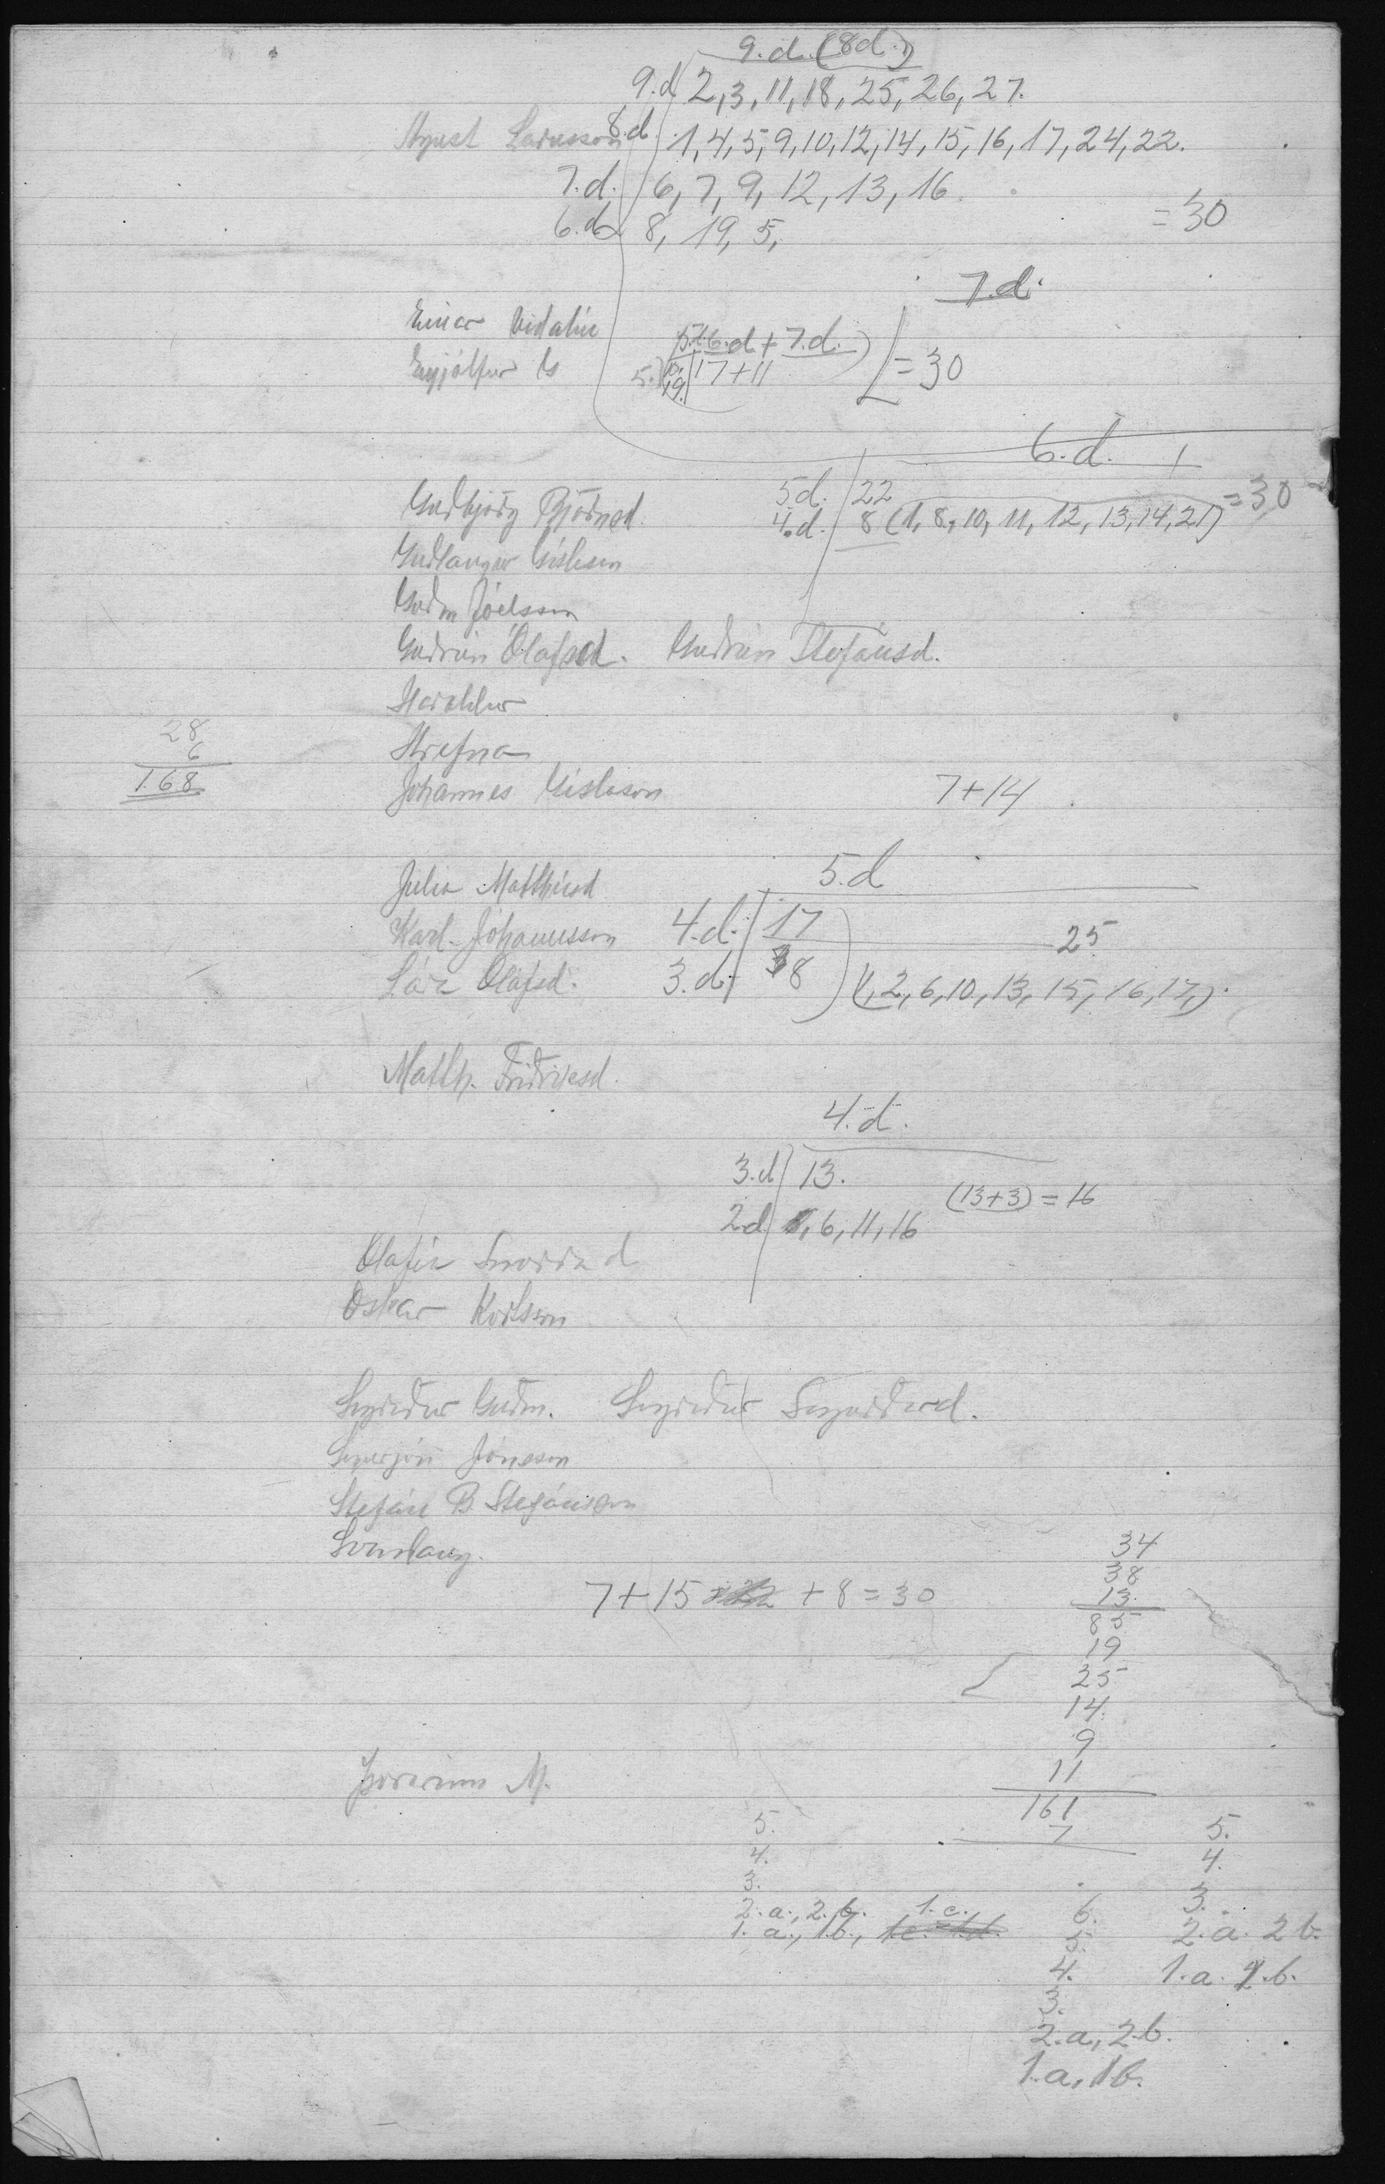 9.d. (8d.)
9.d. 2, 3, 11, 18, 25, 26, 27.
Ágúst Lárusson 8.d. 1, 4, 5, 9, 10, 12, 14, 15, 16, 17, 24, 22.
7.d. 6, 7, 9, 12, 13, 16.
6.d. 8, 19, 5, = 30
7.d.
Einar Vídalín 5.d. 6.d + 7.d.
Eyjólfur 5. 19. 17+11 = 30
6.d.
Guðbjörg Björnsd. 5d. 22 = 30
4.d. 8 (1, 8, 10, 11, 12, 13, 14, 21)
Guðlaugur Gíslason
Guðm Jóelsson
Guðrún Ólafsd. Guðrún Stefánsd.
Haraldur
28
6 Hrefna
168 Jóhannes Gíslason 7+14
5.d
Júlía Matthíasd
Karl Jóhannsson 4.d. 17 25
Lára Ólafsd. 3.d. 8 (1, 2, 6, 10, 13, 15, 16, 17,)
Matth. Friðriksd.
4.d.
3.d 13. (13+3) = 16
2.d 1, 6, 11, 16
Ólafía Snorrad
Óskar Karlsson
Sigríður Guðm. Sigríður Sigurðard.
Sigurjón Jónsson
Stefán B. Stefánsson
Svanlaug.
34
38
7+15 + 8 = 30 13
85
19
25
14
9
Þórarinn M. 11
161
5. 7 5.
4. 4.
3. 3.
2.a., 2.b. 1.c. 6. 2.a. 2b.
1.a., 1.b., 1.c. 1.d. 5.
4. 1.a. 1.b.
3.
2.a, 2.b.
1.a, 1b.